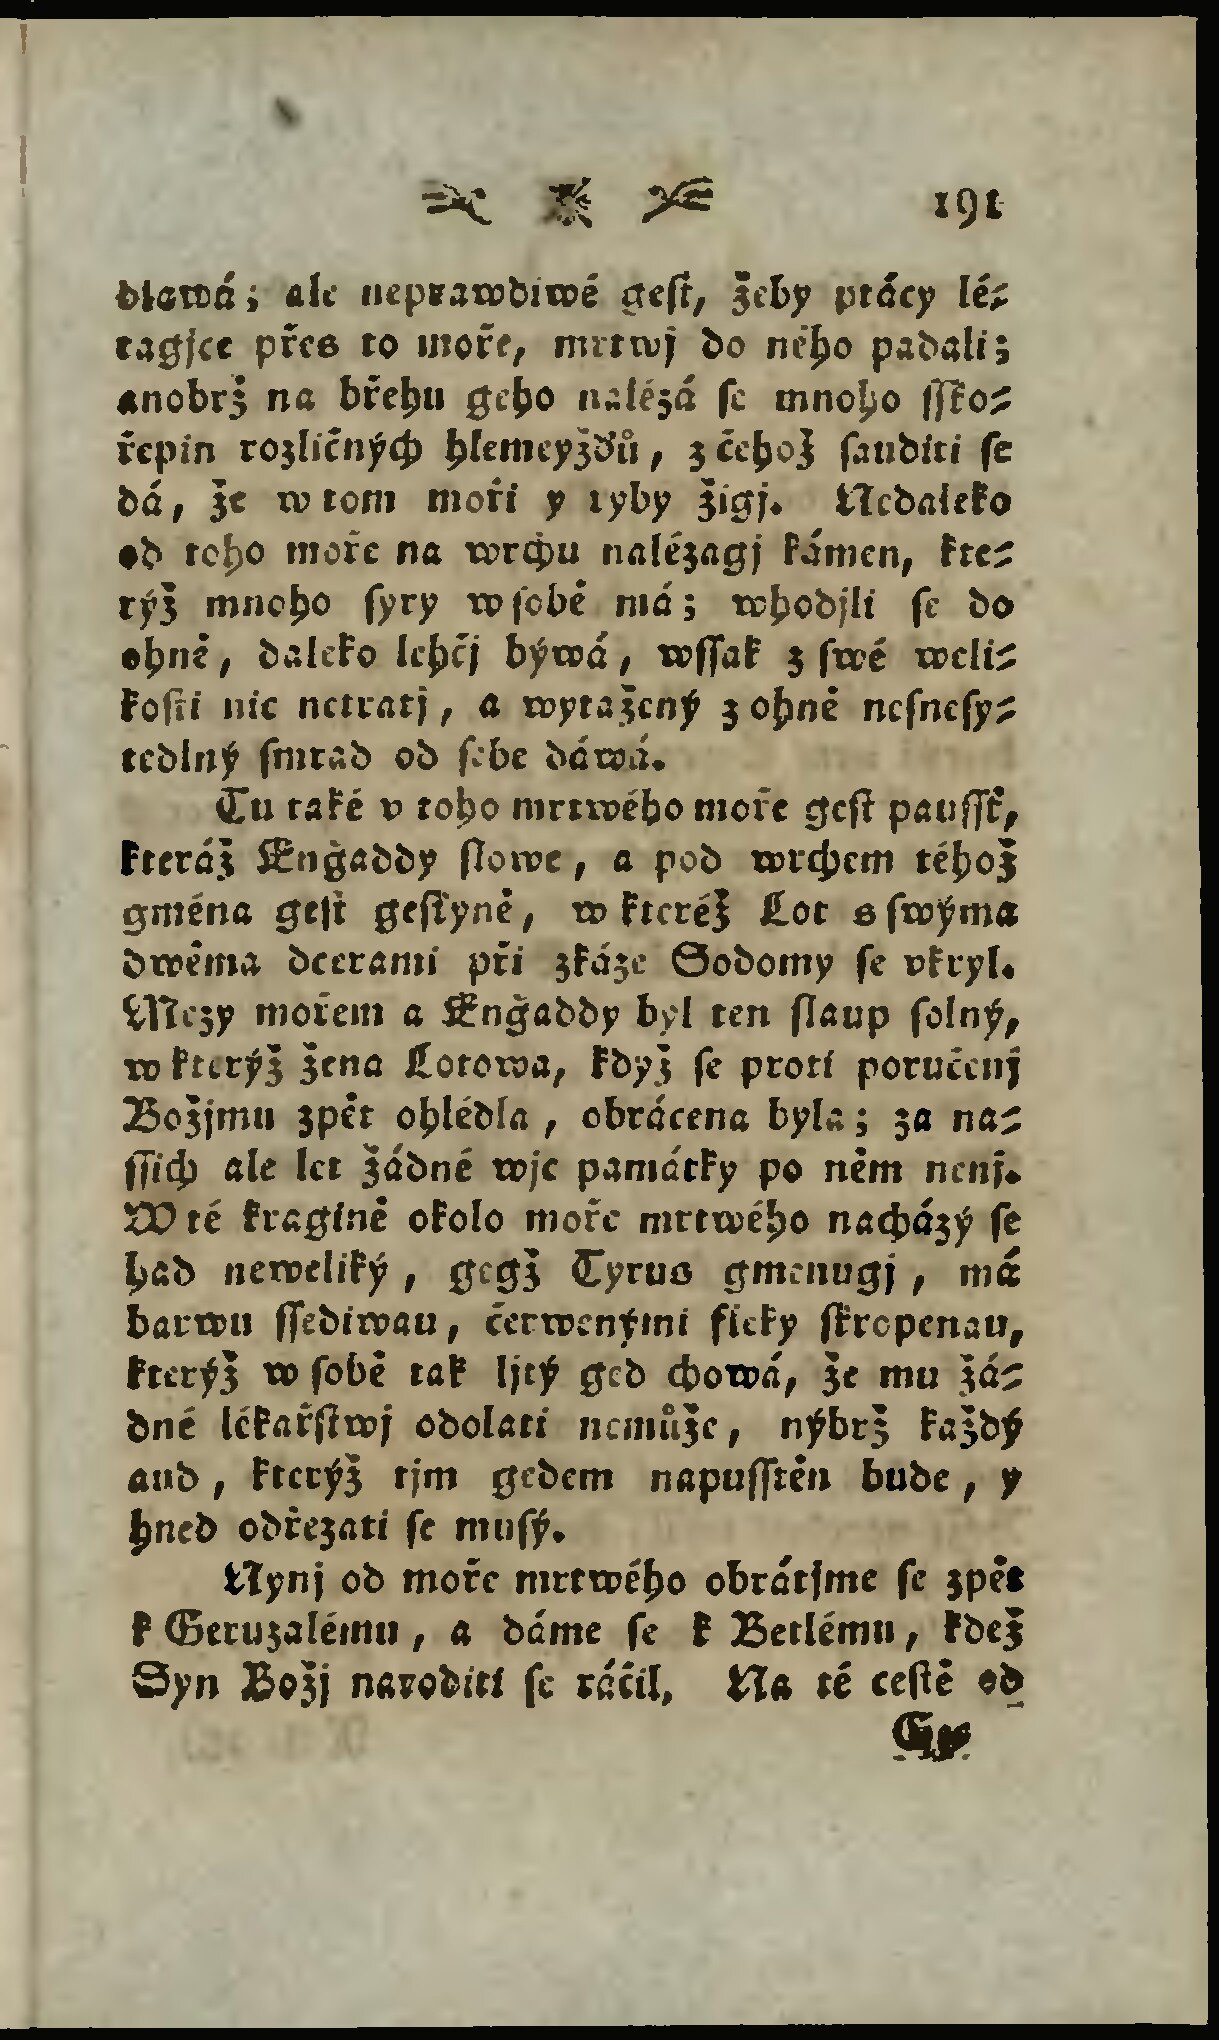 191
dlawá; ale neprawdiwé gest, žeby ptácy lé⸗
tagjce přes to moře, mrtwj do něho padali;
anobrž na břehu geho nalézá se mnoho sško⸗
řepin rozličných hlemeyžďů, z čehož sauditi se
dá, že w tom moři y ryby žigj. Nedaleko
od toho moře na wrchu nalézagj kámen, kte⸗
rýž mnoho syry w sobě má; whodjli se do
ohně, daleko lehčj býwá, wssak z swé weli⸗
kosti nic netratj, a wytažený z ohně nesnesy⸗
tedlný smrad od sebe dáwá.
Tu také v toho mrtwého moře gest paussť,
kteráž Enğaddy slowe, a pod wrchem téhož
gména gest gestyně, w kteréž Lot s swýma
dwěma dcerami při zkáze Sodomy se vkryl.
Mezy mořem a Enğaddy byl ten slaup solný,
w kterýž žena Lotowa, když se proti poručenj
Božjmu zpět ohlédla, obrácena byla; za na⸗
ssich ale let žádné wjc památky po něm nenj.
W té kragině okolo moře mrtwého nacházý se
had neweliký, gegž Tyrus gmenugj, má
barwu ssediwau, čerwenými flecky skropenau,
kterýž w sobě tak ljtý ged chowá, že mu žá⸗
dné lékařstwj odolati nemůže, nýbrž každý
aud, kterýž tjm gedem napusstěn bude, y
hned odřezati se musý.
Nynj od moře mrtwého obrátjme se zpět
k Geruzalému, a dáme se k Betlému, kdež
Syn Božj naroditi se ráčil. Na té cestě od